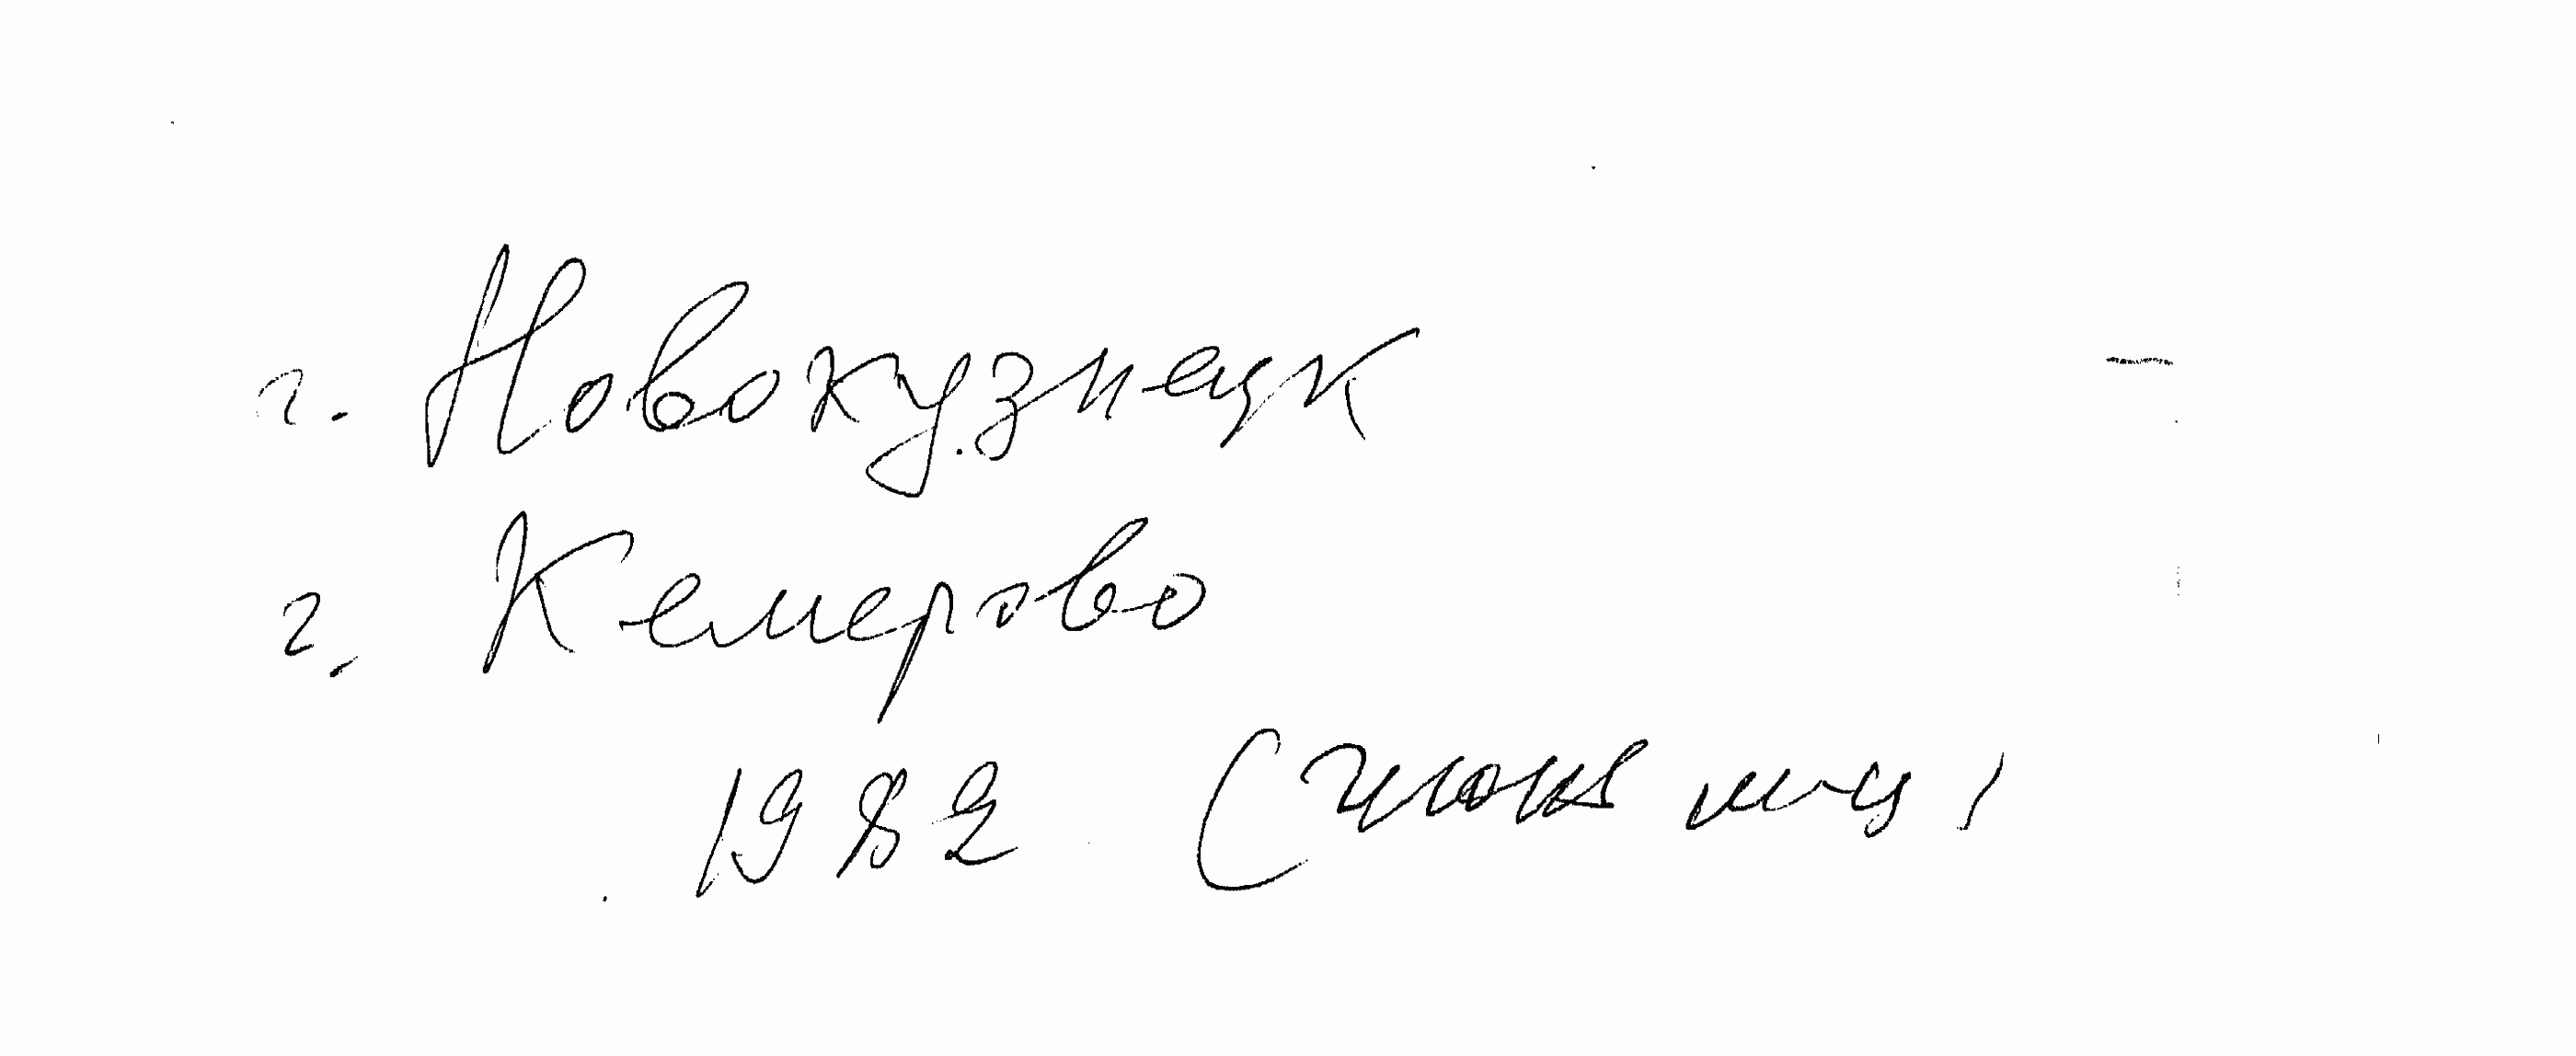 г. Новокузнецк
г. Кемерово
1982 (июнь м-ц)